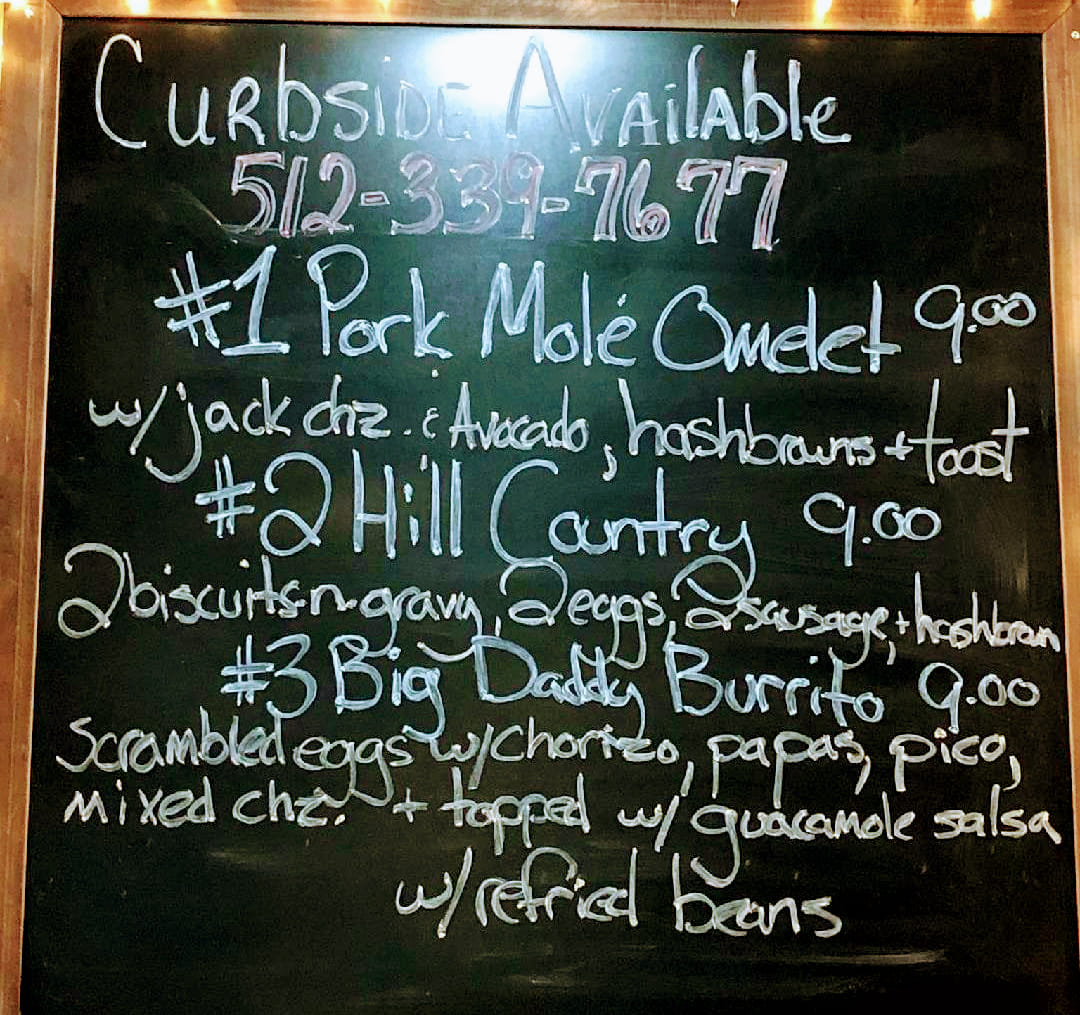 Curbside Available
512-339-7677
#1 Pork Molé Omelet 9.00
w/jack chz. & Avocado, hashbrowns + toast
#2 Hill Country 9.00
2 biscuits-n-gravy, 2 eggs, 2 sausage, + hashbrown
#3 Big Daddy Burrito 9.00
Scrambled eggs w/chorizo, papas, pico,
mixed chz. + topped w/ guacamole salsa
w/refried beans